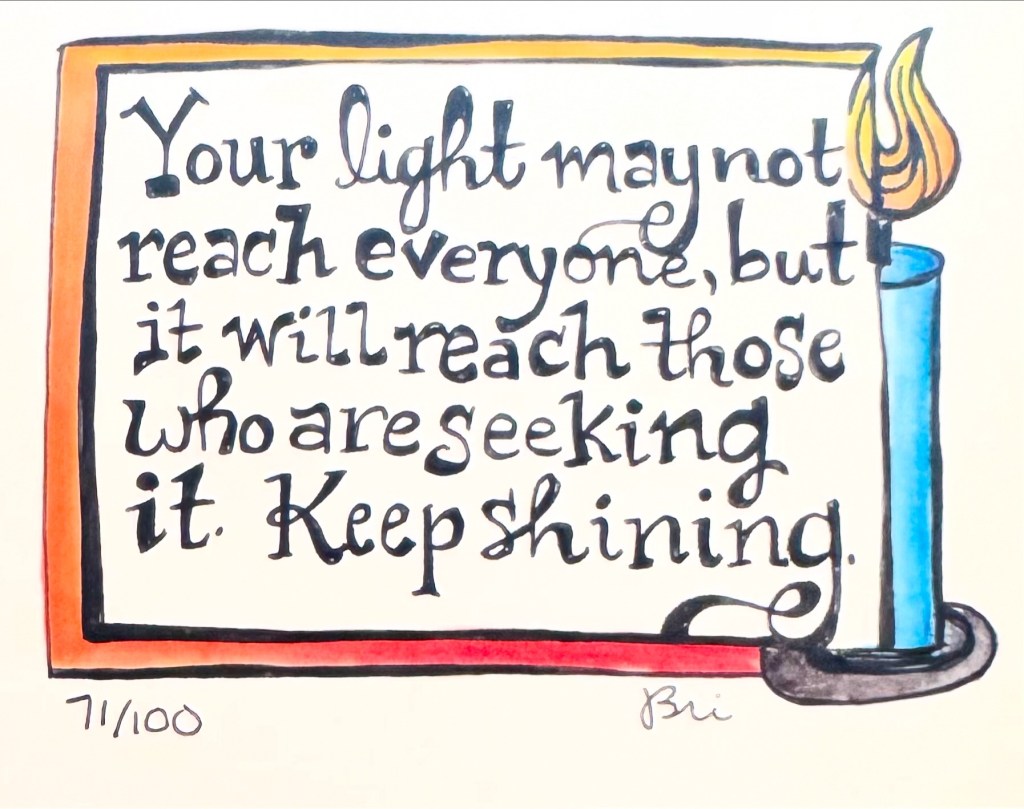 Your light may not
reach everyone, but
it will reach those
who are seeking
it. Keep shining.
71/100 Bri